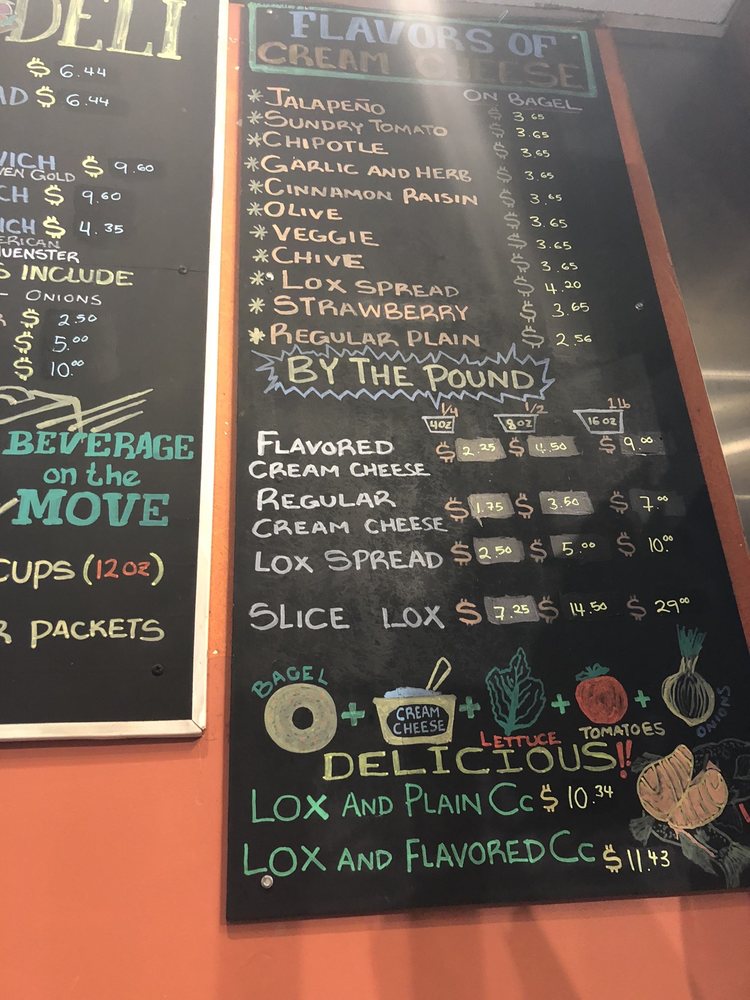 DELI
$ 6.44
AD $ 6.44
WICH $ 9.60
VEN GOLD
CH $ 9.60
ICH $ 4.35
ERICAN
MUENSTER
S INCLUDE
- ONIONS
R $ 2.50
$ 5.00
$ 10.00
BEVERAGE
on the
MOVE
CUPS (12oz)
R PACKETS
FLAVORS OF
CREAM CHEESE
ON BAGEL
*JALAPEÑO $ 3.65
*SUNDRY TOMATO $ 3.65
*CHIPOTLE $ 3.65
*GARLIC AND HERB $ 3.65
*CINNAMON RAISIN $ 3.65
*OLIVE $ 3.65
*VEGGIE $ 3.65
*CHIVE $ 3.65
* LOX SPREAD $ 4.20
*STRAWBERRY $ 3.65
*REGULAR PLAIN $ 2.56
BY THE POUND
1/4 1/2 1 lb
4oz 8oz 16oz
FLAVORED $ 2.25 $ 4.50 $ 9.00
CREAM CHEESE
REGULAR $ 1.75 $ 3.50 $ 7.00
CREAM CHEESE
LOX SPREAD $ 2.50 $ 5.00 $ 10.00
SLICE LOX $ 7.25 $ 14.50 $ 29.00
BAGEL + CREAM CHEESE + LETTUCE + TOMATOES + ONIONS
DELICIOUS!!
LOX AND PLAIN CC $ 10.34
LOX AND FLAVORED CC $ 11.43